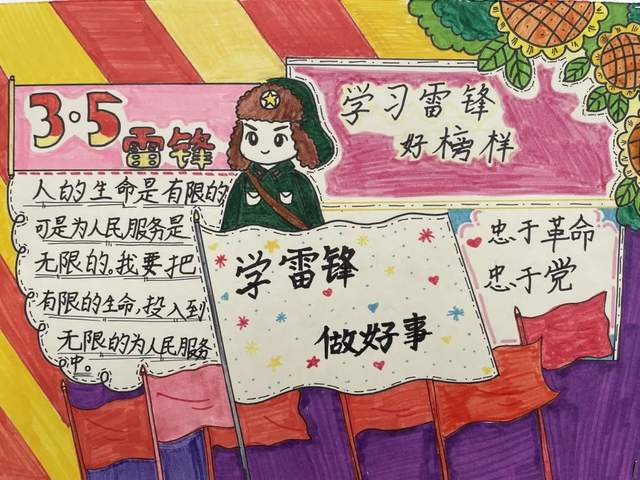 3·5
雷锋
学习雷锋
好榜样
人的生命是有限的,
可是为人民服务是
无限的。我要把
有限的生命,投入到
无限的为人民服务
中。
学雷锋
做好事
忠于革命
忠于党